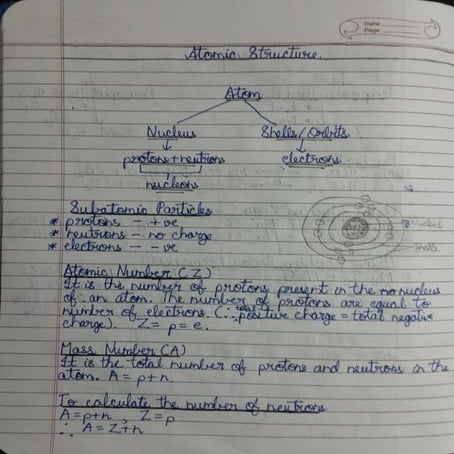 Date
Page
Atomic Structure.
Atom
Nucleus Shells/Orbits
protons+neutrons electrons
nucleons
Subatomic Particles
* protons - +ve
* neutrons - no charge
* electrons - -ve
Nucleus
Shells
Atomic Number (Z)
It is the number of protons present in the nucleus
of an atom. The number of protons are equal to
number of electrons. (∵ total positive charge = total negative
charge). Z = p = e.
Mass Number (A)
It is the total number of protons and neutrons in the
atom. A = p+n.
To calculate the number of neutrons
A = p+n, Z = p
∴ A = Z+n